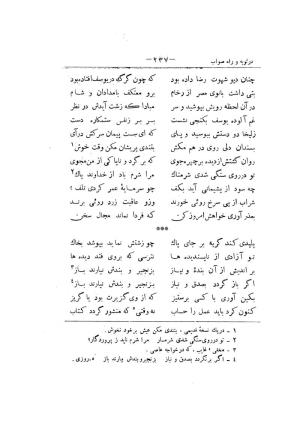 در توبه و راه صواب
— ۲۳۷ —
چنان دیو شهوت رضا داده بود که چون گرگ در یوسف افتاده بود
بتی داشت بانوی مصر از رخام برو معتکف بامدادان و شام
در آن لحظه رویش بپوشید و سر مبادا که زشت آیدش در نظر
غم آلوده یوسف بکنجی نشست بسر بر ز نفس ستمکاره دست
زلیخا دو دستش ببوسید و پای که ای سست پیمان سرکش در آی
بسندان دلی روی در هم مکش بتندی پریشان مکن وقت خوش ۱
روان گشتش از دیده بر چهره جوی که برگرد و ناپاکی از من مجوی
تو در روی سنگی شدی شرمناک مرا شرم باد از خداوند پاک ۲
چه سود از پشیمانی آید بکف چو سرمایهٔ عمر کردی تلف
شراب از پی سرخ روئی خورند وزو عاقبت زرد روئی برند
بعذر آوری خواهش امروز کن که فردا نماند مجال سخن
***
پلیدی کند گربه بر جای پاک چو زشتش نماید بپوشد بخاک
تو آزادی از ناپسندیده ها نترسی که بر وی فتد دیده ها
بر اندیش از آن بندهٔ
اگر باز گردد بصدق و نیاز بزنجیر و بندش نیارند باز
بکین آوری با کسی بر ستیز که از وی گزیرت بود یا گریز
کنون کرد باید عمل را حساب نه وقتی که منشور گردد کتاب
۱ – در یک نسخهٔ قدیمی: بتندی مکن عیش بر خود نخوش.
۲ – تو در روی سنگی شدی شرمسار مرا شرم ناید ز پروردگار؟
۴ – اگر برگردد بصدق و نیاز بزنجیر و بندش نیارند باز